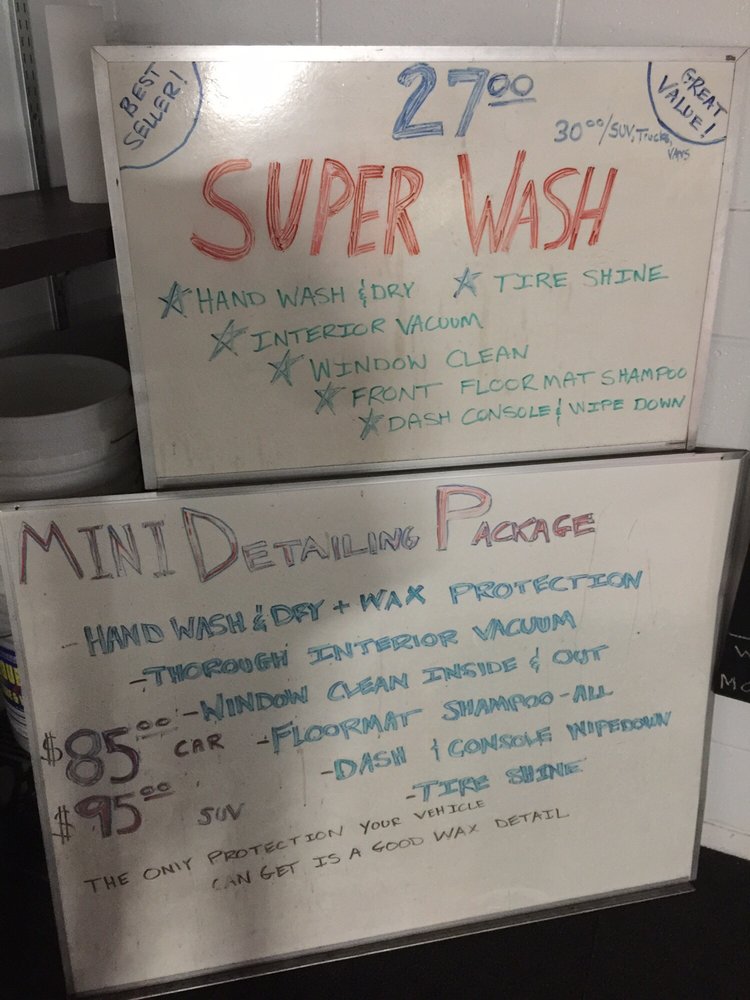 BEST SELLER!
27⁰⁰
GREAT VALUE!
30⁰⁰/SUV, TRUCKS, VANS
SUPER WASH
☆ HAND WASH & DRY ☆ TIRE SHINE
☆ INTERIOR VACUUM
☆ WINDOW CLEAN
☆ FRONT FLOORMAT SHAMPOO
☆ DASH CONSOLE & WIPE DOWN
MINI DETAILING PACKAGE
- HAND WASH & DRY + WAX PROTECTION
- THOROUGH INTERIOR VACUUM
- WINDOW CLEAN INSIDE & OUT
- FLOORMAT SHAMPOO - ALL
$85⁰⁰ CAR
- DASH & CONSOLE WIPEDOWN
- TIRE SHINE
$95⁰⁰ SUV
THE ONLY PROTECTION YOUR VEHICLE
CAN GET IS A GOOD WAX DETAIL